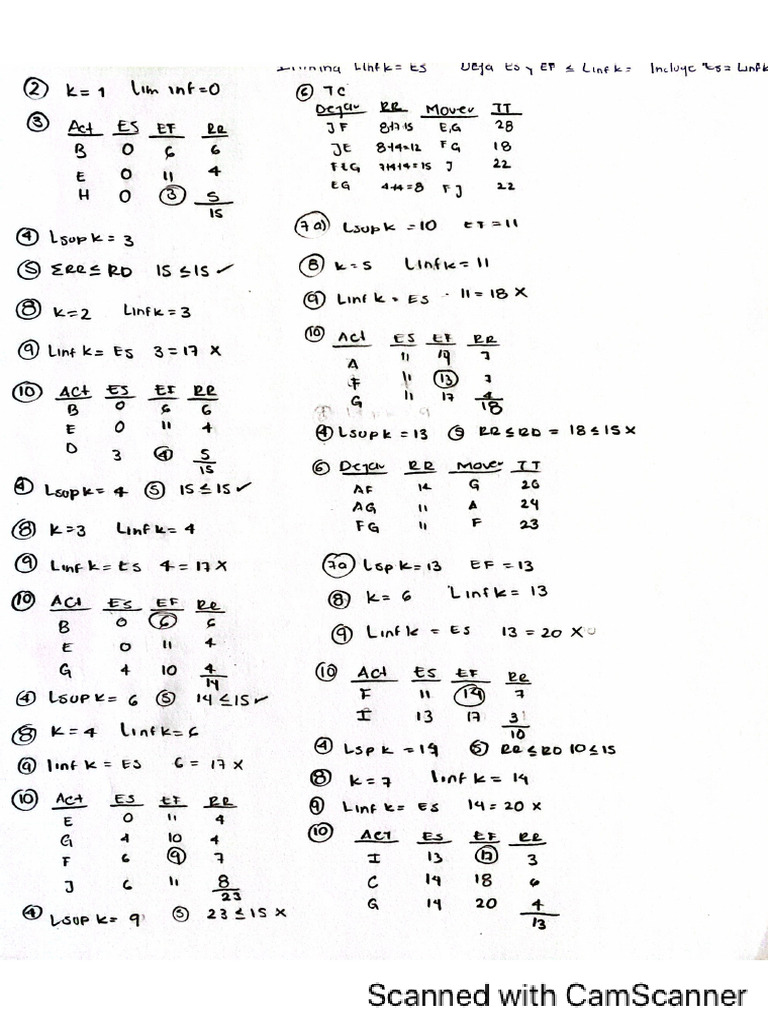 Linf k = ES Deja ES y EF ≤ Linf k = Incluye ES = Linf k
② k = 1 Lim inf = 0
③ Act ES EF RR
B 0 6 6
E 0 11 4
H 0 ③ 5
15
④ Lsup k = 3
⑤ ΣRR ≤ RD 15 ≤ 15 ✓
⑧ k=2 Linf k = 3
⑨ Linf k = ES 3 = 17 X
⑩ Act ES EF RR
B 0 6 6
E 0 11 4
D 3 ④ 5
15
④ Lsup k = 4 ⑤ 15 ≤ 15 ✓
⑧ k=3 Linf k = 4
⑨ Linf k = ES 4 = 17 X
⑩ Act ES EF RR
B 0 ⑥ 6
E 0 11 4
G 4 10 4
14
④ Lsup k = 6 ⑤ 14 ≤ 15 ✓
⑧ k = 4 Linf k = 6
⑨ linf k = ES 6 = 17 X
⑩ Act ES EF RR
E 0 11 4
G 4 10 4
F 6 ⑨ 7
J 6 11 8
23
④ Lsup k = 9 ⑤ 23 ≤ 15 X
⑥ TC
Dejar RR Mover TT
JF 8+7=15 E,G 28
JE 8+4=12 FG 18
FEG 7+4+4=15 J 22
EG 4+4=8 FJ 22
7a) Lsup k = 10 EF = 11
⑧ k = 5 Linf k = 11
⑨ Linf k = ES 11 = 18 X
⑩ Act ES EF RR
A 11 19 7
F 11 ⑬ 7
G 11 17 4
18
④ Lsup k = 13 ⑤ RR ≤ RD = 18 ≤ 15 X
⑥ Dejar RR Mover TT
AF 14 G 26
AG 11 A 24
FG 11 F 23
7a Lsp k = 13 EF = 13
⑧ k = 6 Linf k = 13
⑨ Linf k = ES 13 = 20 X
⑩ Act ES EF RR
F 11 ⑭ 7
I 13 17 3
10
④ Lsp k = 14 ⑤ RR ≤ RD 10 ≤ 15
⑧ k = 7 linf k = 14
⑨ Linf k = ES 14 = 20 X
⑩ Act ES EF RR
I 13 ⑰ 3
C 14 18 6
G 14 20 4
13
Scanned with CamScanner